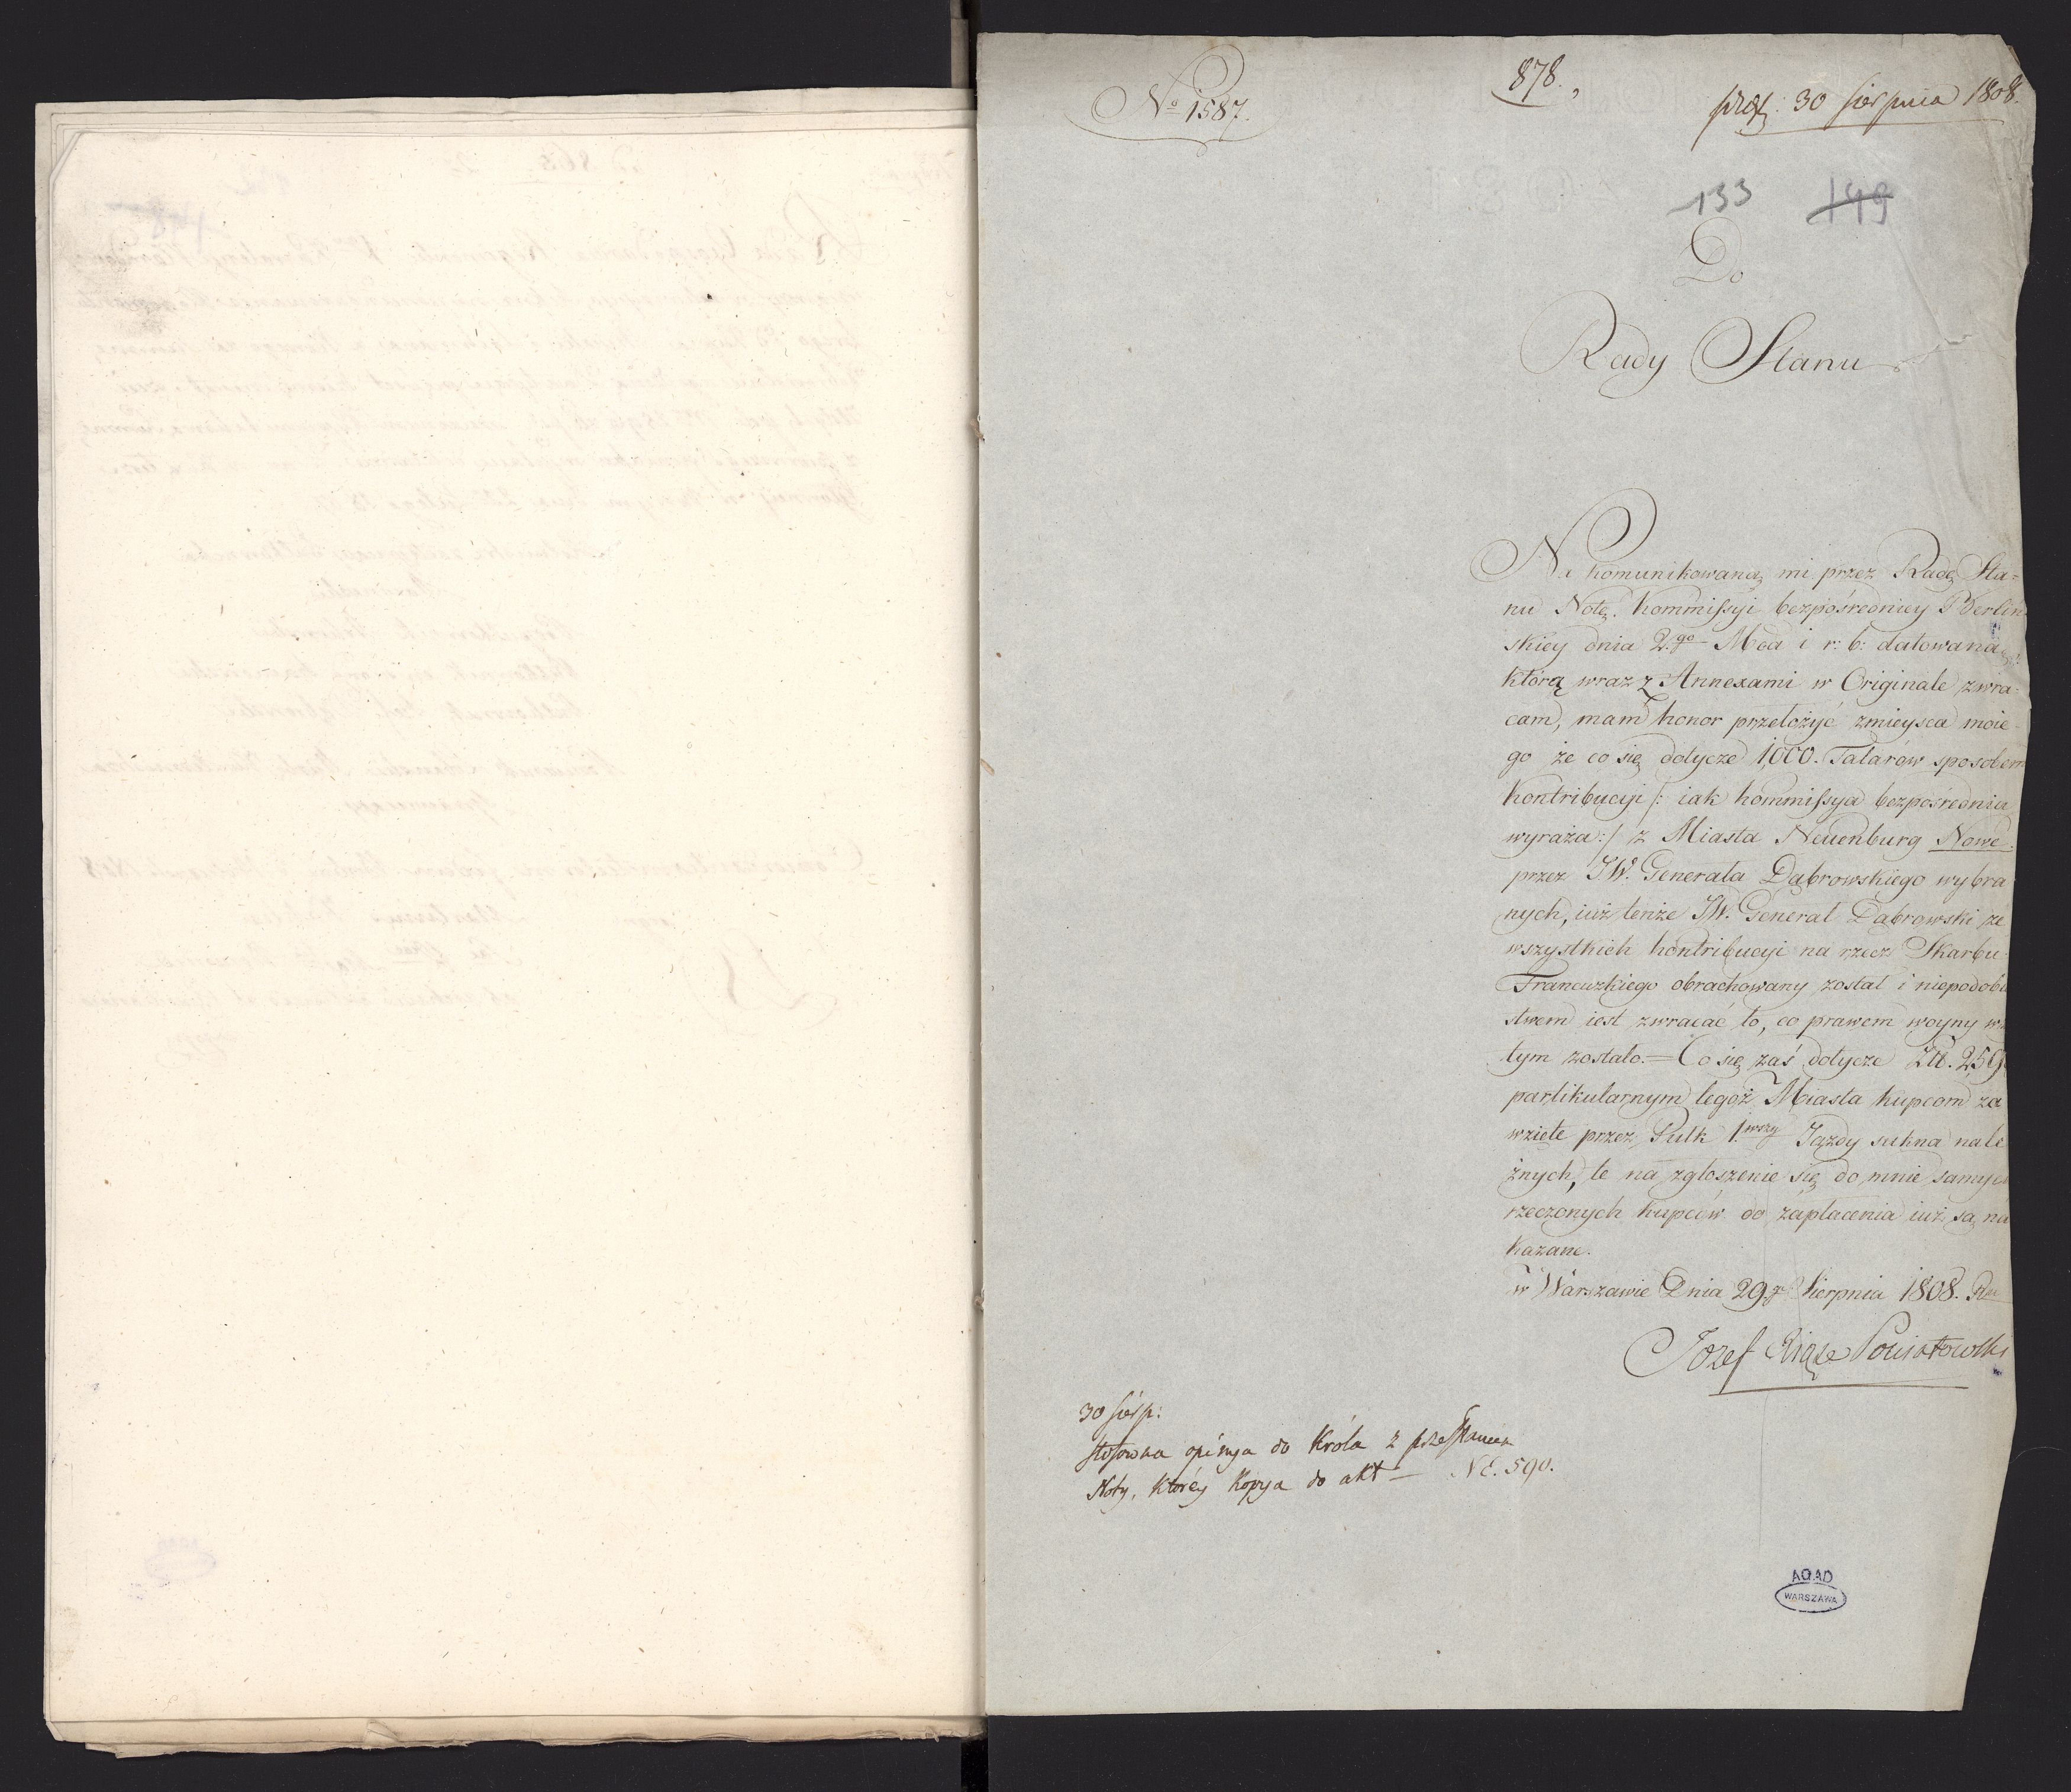 No 1587.
878.
prez: 30 sierpnia 1808.
133 149
Do
Rady Stanu
Na komunikowaną mi przez Radę Sta=
nu Notę Kommissyi bezpośredniey Berlin
skiey dnia 2.go Mca i r: b: datowaną
którą wraz z Annexami w Originale zwra=
cam, mam honor przełożyć zmieysca moie
go że co się dotycze 1,000. Talarów sposobem
Kontribucyi /: iak Kommissya bezpośrednia
wyraża:/ z Miasta Neuenburg Nowe
przez J.W. Generała Dąbrowskiego wybra
nych, iuż tenże JW. Generał Dąbrowski ze
wszystkich kontribucyi na rzecz Skarbu
Francuzkiego obrachowany został i niepodob
stwem iest zwracać to, co prawem woyny w
tym zostało.= Co się zaś dotycze Złł. 259
partikularnym tegoż Miasta kupcom za
wzięte przez Pułk 1.wszy Jazdy sukna nale
żnych, te na zgłoszenie się do mnie samych
rzeczonych kupców do zapłacenia iuż są na
kazane.
w Warszawie Dnia 29.go Sierpnia 1808.
Jozef Xiąże Poniatowski
30 sierp:
stosowna opinya do Króla z przesłaniem
Noty, którey kopya do akt — NE. 590.
AGAD
WARSZAWA